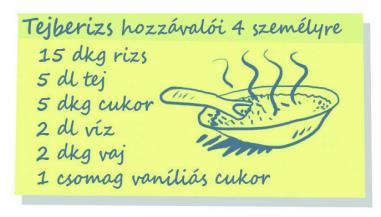 Tejberizs hozzávalói 4 személyre
15 dkg rizs
5 dl tej
5 dkg cukor
2 dl víz
2 dkg vaj
1 csomag vaníliás cukor